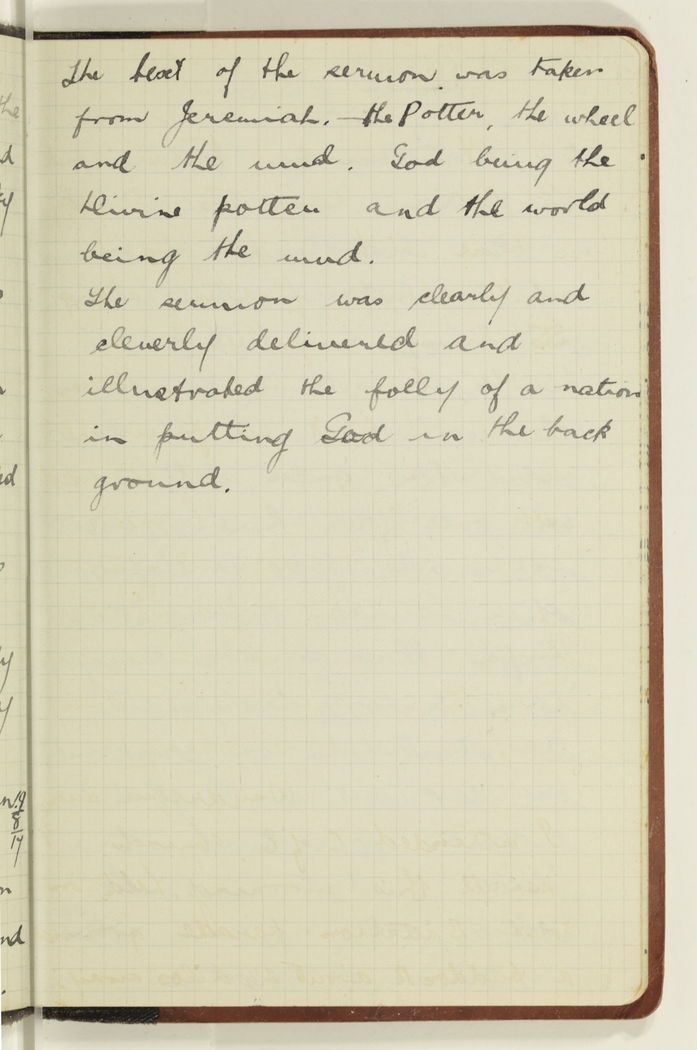 The text of the sermon was taken
from Jeremiah. – the Potter, the wheel
and the mud. God being the
Divine potter and the world
being the mud.
The sermon was clearly and
cleverly delivered and
illustrated the folly of a nation
in putting God in the back
ground.